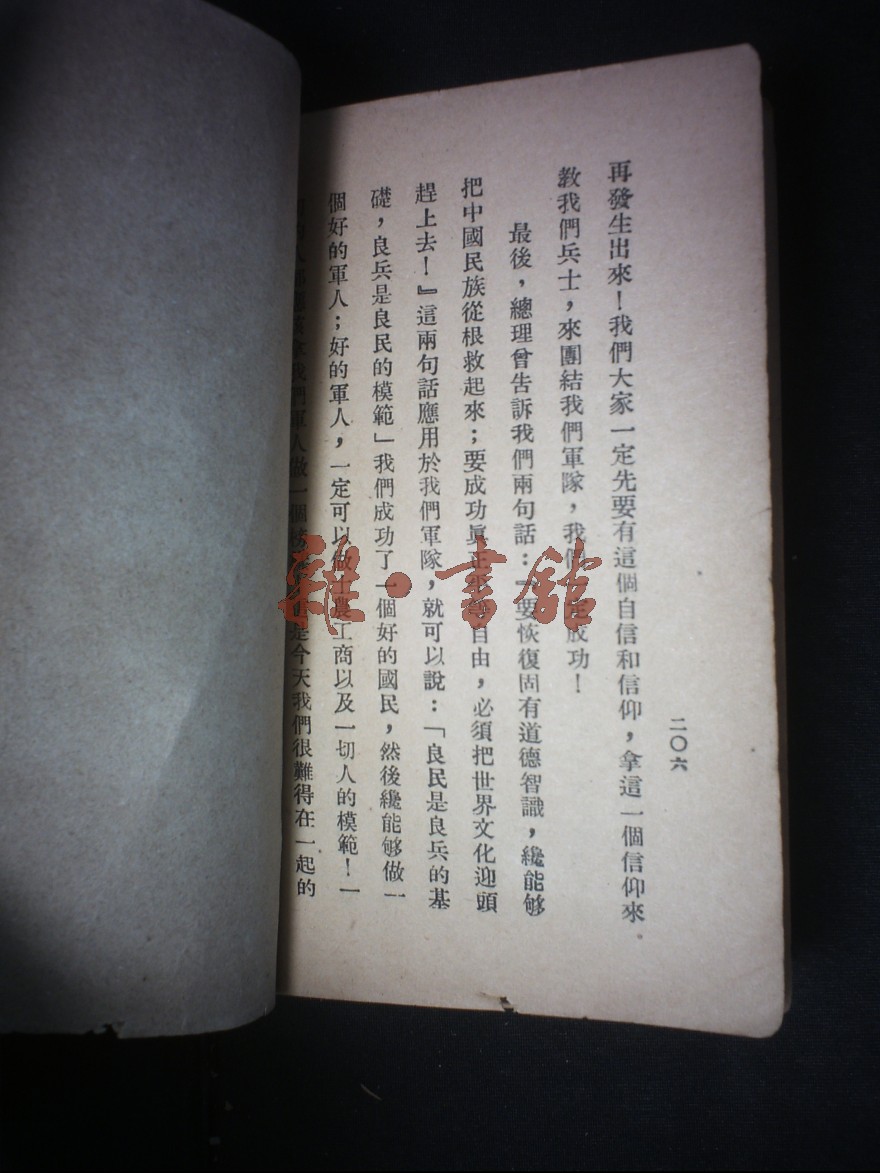 二〇六
再發生出來！我們大家一定先要有這個自信和信仰，拿這一個信仰來
敎我們兵士，來團結我們軍隊，我們一定成功！
最後，總理曾告訴我們兩句話：『要恢復固有道德智識，纔能够
把中國民族從根救起來；要成功眞正自由，必須把世界文化迎頭
趕上去！』這兩句話應用於我們軍隊，就可以說：「良民是良兵的基
礎，良兵是良民的模範」我們成功了一個好的國民，然後纔能够做一
個好的軍人；好的軍人，一定可以做士農工商以及一切人的模範！一
我們軍人做一個是今天我們很難得在一起的
雜·書館